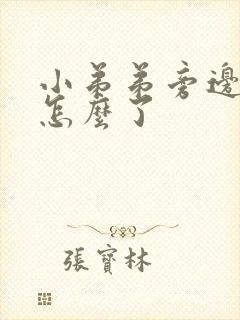 小弟弟旁邊
怎麼了
張寶林